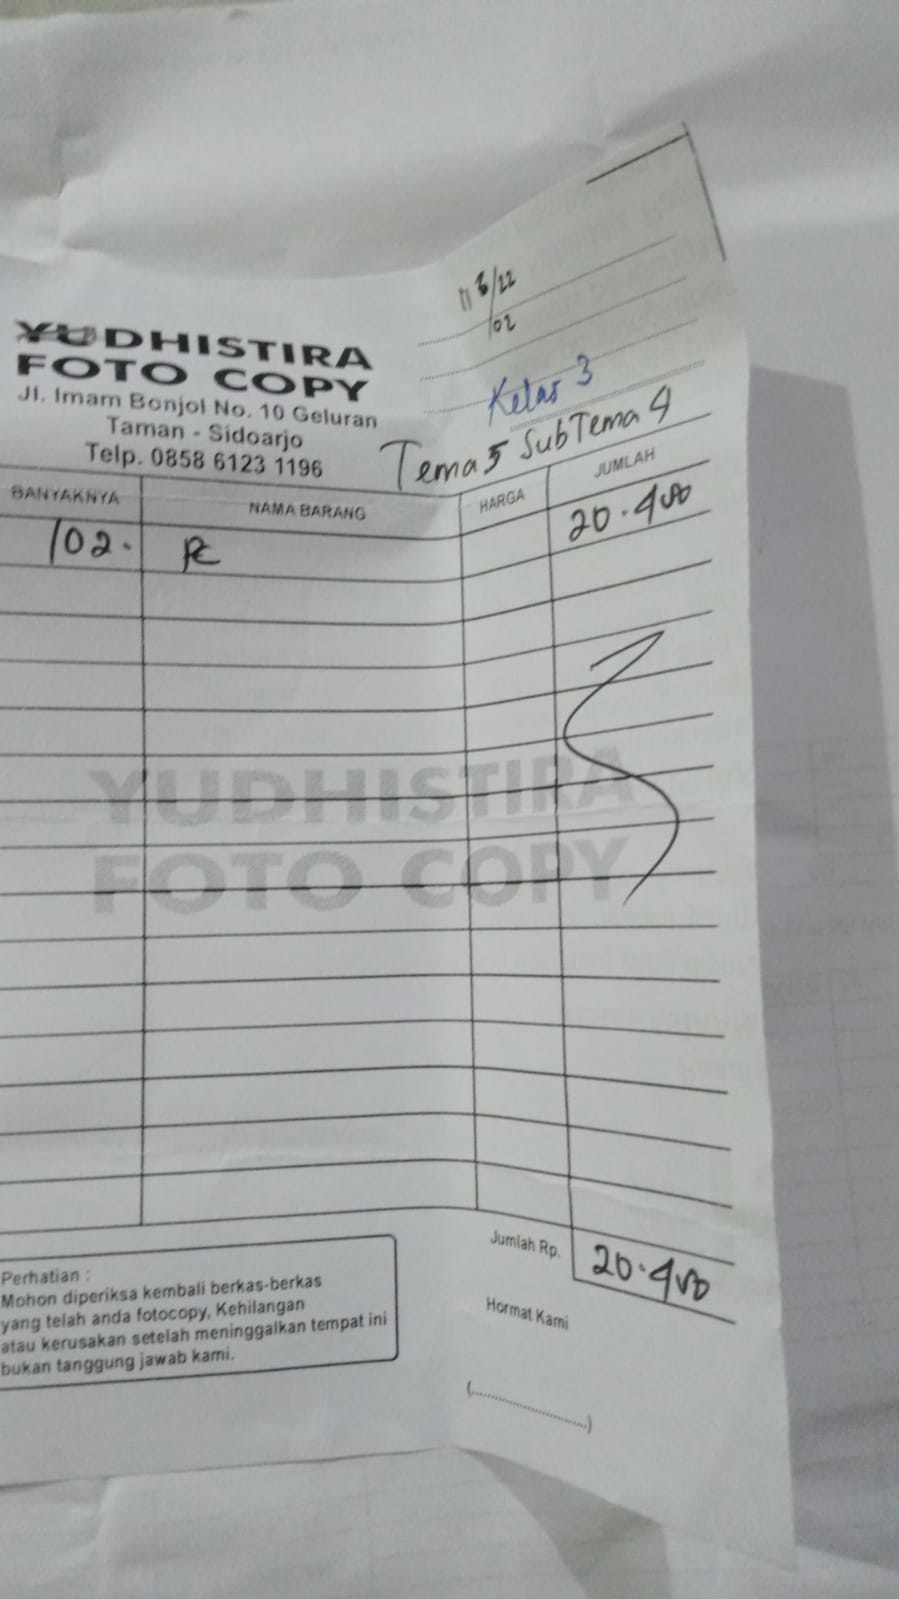 YUDHISTIRA
FOTO COPY
Jl. Imam Bonjol No. 10 Geluran
Taman - Sidoarjo
Telp. 0858 6123 1196
/22
/02
Kelas 3
Tema 5 SubTema 4
BANYAKNYA NAMA BARANG HARGA JUMLAH
102. FC 20.400
YUDHISTIRA
FOTO COPY
Jumlah Rp. 20.400
Perhatian :
Mohon diperiksa kembali berkas-berkas
yang telah anda fotocopy, Kehilangan
atau kerusakan setelah meninggalkan tempat ini
bukan tanggung jawab kami.
Hormat Kami
(....................)